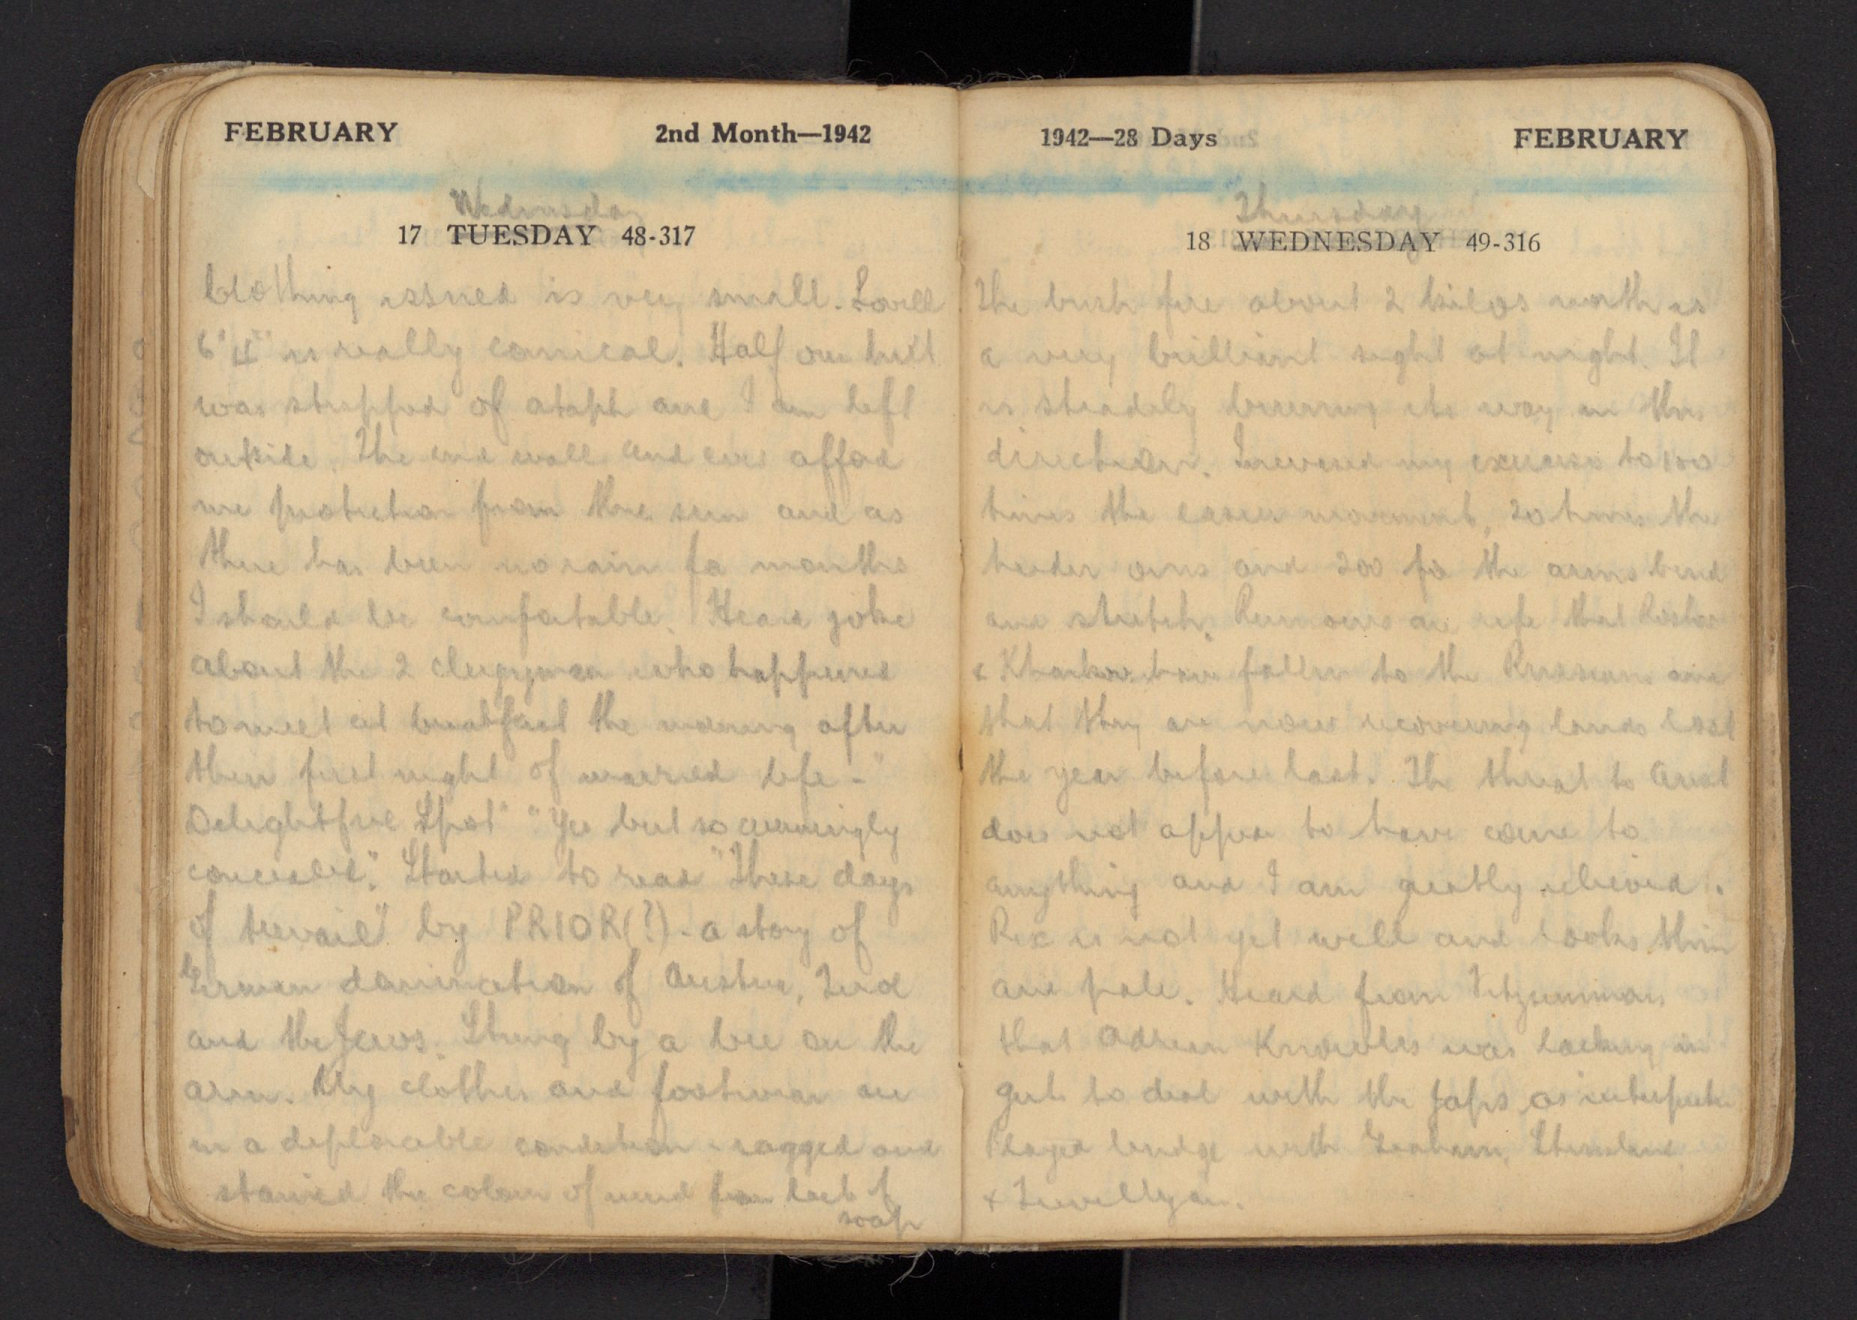 FEBRUARY 2nd Month—1942
Wednesday
17 TUESDAY 48-317
Clothing issued is very small. Lovell
6' 4" is really comical. Half our hut
was stripped of ataph and I am left
outside. The end wall and eves afford
me protection from the sun and as
there has been no rain for months
I should be comfortable. Heard joke
about the 2 clergymen who happened
to meet at breakfast the morning after
their first night of married life - "
Delightful Spot" "Yes but so cunningly
concealed". Started to read "These days
of travail" by PRIOR(?) - a story of
German domination of Austria, Tirol
and the Jews. Stung by a bee on the
arm. My clothes and footwear are
in a deplorable condition - ragged and
stained the colour of mud from lack of
soap
1942—28 Days FEBRUARY
Thursday
18 WEDNESDAY 49-316
The bush fire about 2 kilos north is
a very brilliant sight at night. It
is steadily burning its way in this
direction. Increased my exercises to 100
times the easier movements, 20 times the
harder ones and 200 for the arms bend
and stretch. Rumours are rife that Rostov
& Kharkov have fallen to the Russians and
that they are now recovering lands lost
the year before last. The threat to
does not appear to have come to
anything and I am greatly relieved.
Rex is not yet well and looks thin
and pale. Heard from Fitzsimmons
that Adrian Knowles was lacking in
guts to deal with the Japs as interpreter
Played bridge with Graham,
& Trevellyan.